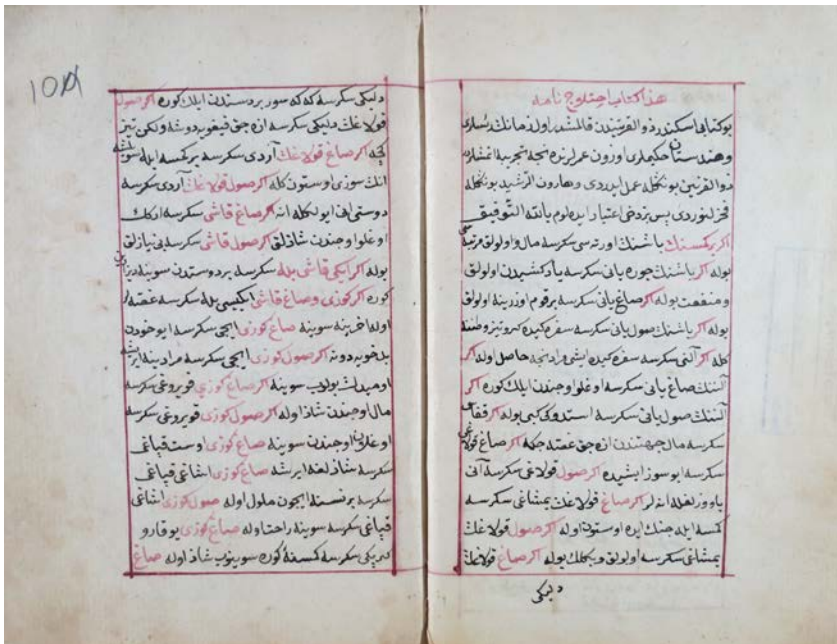 هذا كتاب اختلاج نامه
بوكتابى اسكندر ذو القرنيدن قالمشدر اول زمانك
وهندستان حكيملرى اوزون عمرلرنده نجه تجربه ايتمشلردر
ذو القرنين بونكله عمل ايدردى وهارون الرشيد بونكله
فخرلنوردى پس بز دخى اعتبار ايدهلوم بالله التوفيق
اكر بركمسنك باشنك اورته سى سكرسه مال واولولق مرتبه سى
بوله اكر باشنك چوره يانى سكرسه ياد كشيدن اولولق
ومنفعت بوله اكر صاغ يانى سكرسه بر قوم اوزرينه اولولق
بوله اكر باشنك صول يانى سكرسه سفره كيده كيرو تيز وطننه
كله اكر آلنى سكرسه سفره كيده ايشى مرادنجه حاصل اوله اكر
آلننك صاغ يانى سكرسه اوغلو اوجندن ايلك كوره اكر
آلننك صول يانى سكرسه استدوكى كبى بوله اكر قفاسى
سكرسه مال جهتندن ازه جق غصه چكه اكر صاغ قولاغى
سكرسه ايو سوز ايشيده اكر صول قولاغى سكرسه آنى
ياووزلغله اكلر اكر صاغ قولاغك يمشاغى سكرسه
كمسه ايله جنك ايده اوستون اوله اكر صول قولاغك
يمشاغى سكرسه اولولق وبكلك بوله اكر صاغ قولاغك
دليكى
10
دليكى سكرسه كه سوز بر دوستدن ايلك كوره اكر صول
قولاغك دليكى سكرسه ازه جق قيغويه دوشه ولكن تيز
كچه اكر صاغ قولاغك آردى سكرسه بر كمسه ايله سويلشه
انك سوزى اوستون كله اكر صول قولاغك آردى سكرسه
دوستى انى ايولكله اكه اكر صاغ قاشى سكرسه
اوغلو اوجندن شاذلق اكر صول قاشى سكرسه بى نيازلق
بوله اكر ايكى قاشى بله سكرسه بر دوستدن سوينه
كوره اكر كوزى وصاغ قاشى ايكيسى بله سكرسه غصه لو
اوله اخرينه سوينه صاغ كوزى ايچى سكرسه ايو خودن
بد خويه دونه اكر صول كوزى ايچى سكرسه مرادينه ايرشه
سوينه اكر صاغ كوزى قويروغى سكرسه
مال اوجندن شاذ اوله اكر صول كوزى قويروغى سكرسه
اوغلان اوجندن سوينه صاغ كوزى اوست قپاغى
سكرسه شاذلغه ايرشه صاغ كوزى اشاغى قپاغى
سكرسه بر نسنه ايچون ملول اوله صول كوزى اشاغى
قپاغى سكرسه سوينه راحت اوله صاغ كوزى يوقارو
كرپكى سكرسه كمسنه كوره سوينوب شاذ اوله صاغ